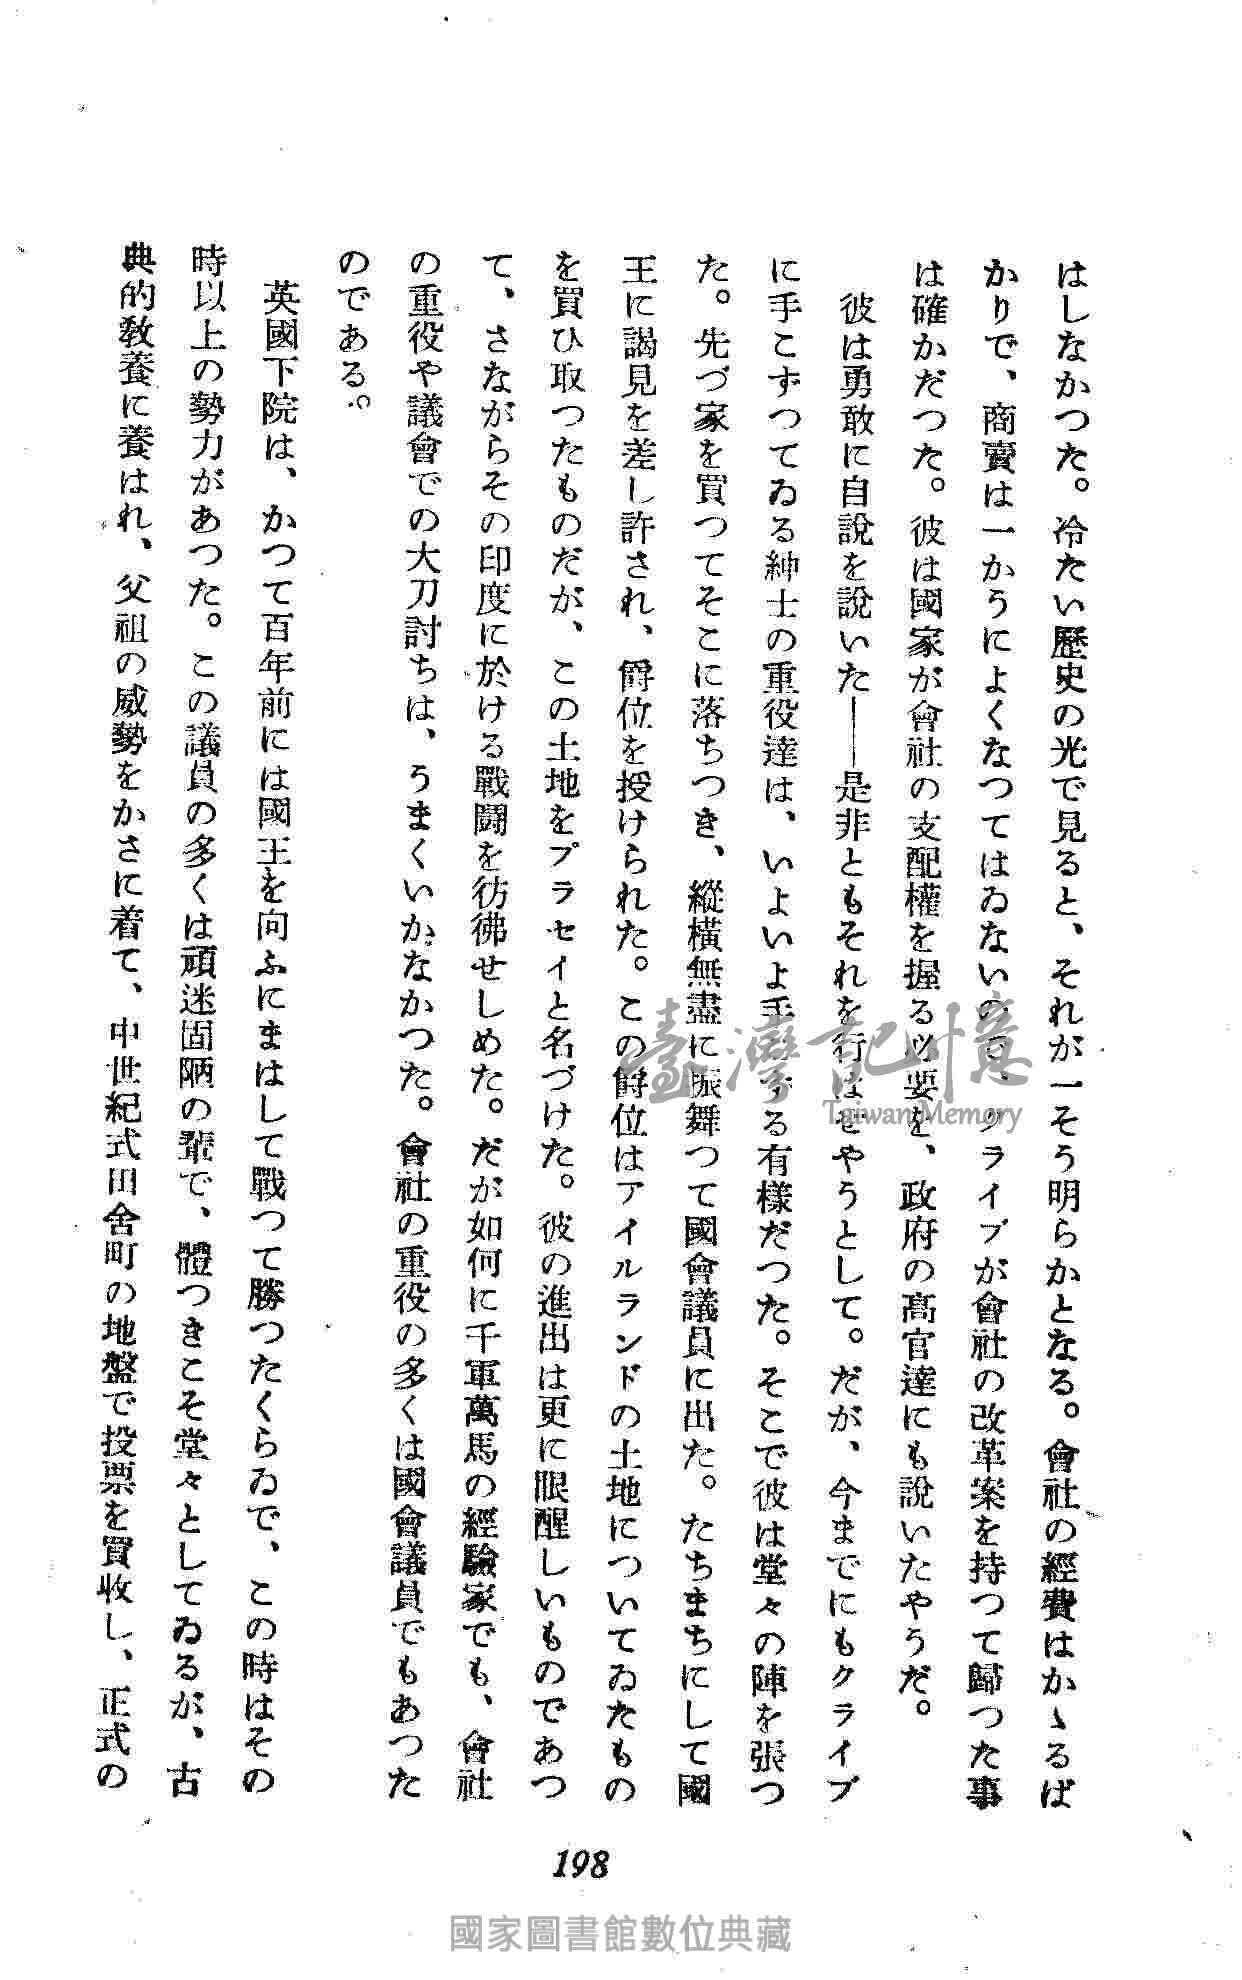 はしなかつた。冷たい歷史の光で見ると、それが一そう明らかとなる。會社の經費はかゝるば
かりで、商賣は一かうによくなつてはゐないので、クライブが會社の改革案を持つて歸つた事
は確かだつた。彼は國家が會社の支配權を握る必要を、政府の高官達にも說いたやうだ。
彼は勇敢に自說を說いた──是非ともそれを行はせやうとして。だが、今までにもクライブ
に手こずつてゐる紳士の重役達は、いよいよ手こずる有樣だつた。そこで彼は堂々の陣を張つ
た。先づ家を買つてそこに落ちつき、縱橫無盡に振舞つて國會議員に出た。たちまちにして國
王に謁見を差し許され、爵位を授けられた。この爵位はアイルランドの土地についてゐたもの
を買ひ取つたものだが、この土地をプラセイと名づけた。彼の進出は更に眼醒しいものであつ
て、さながらその印度に於ける戰鬪を彷彿せしめた。だが如何に千軍萬馬の經驗家でも、會社
の重役や議會での大刀討ちは、うまくいかなかつた。會社の重役の多くは國會議員でもあつた
のである。
英國下院は、かつて百年前には國王を向ふにまはして戰つて勝つたくらゐで、この時はその
時以上の勢力があつた。この議員の多くは頑迷固陋の輩で、體つきこそ堂々としてゐるが、古
典的敎養に養はれ、父祖の威勢をかさに着て、中世紀式田舍町の地盤で投票を買收し、正式の
198
臺灣記憶
Taiwan Memory
國家圖書館數位典藏